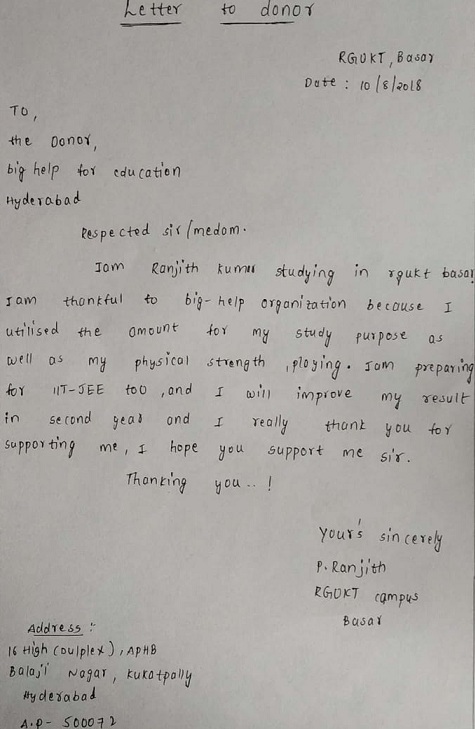 Letter to donor
RGUKT, Basar
Date : 10/8/2018
To,
the Donor,
big help for education
Hyderabad
Respected sir/medom.
Iam Ranjith kumar studying in rgukt basar
Iam thankful to big-help organization because I
utilised the amount for my study purpose as
well as my physical strength ,playing. Iam preparing
for IIT-JEE too ,and I will improve my result
in second year and I really thank you for
supporting me, I hope you support me sir.
Thanking you.. !
Your's sincerely
P. Ranjith
RGUKT campus
Basar
Address :
16 High (oulplex), APHB
Balaji Nagar, kukatpally
Hyderabad
A.P- 500072